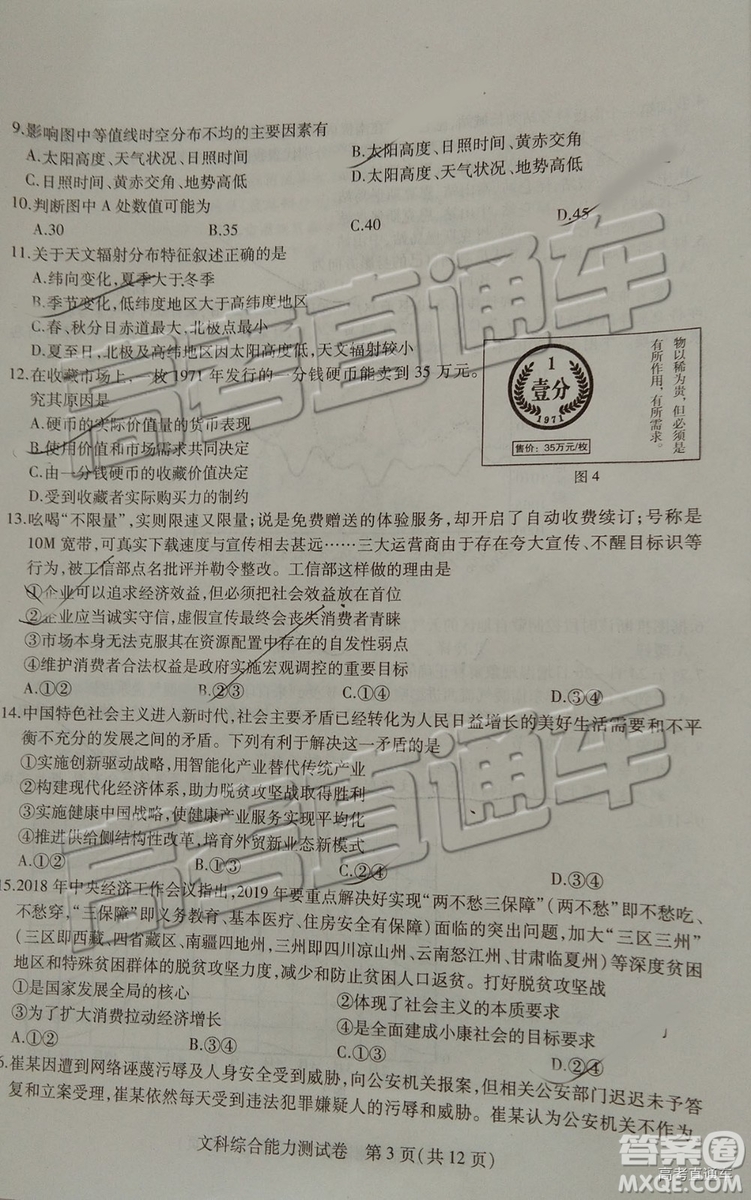 9.影响图中等值线时空分布不均的主要因素有
A.太阳高度、天气状况、日照时间
B.太阳高度、日照时间、黄赤交角
C.日照时间、黄赤交角、地势高低
D.太阳高度、天气状况、地势高低
10.判断图中 A 处数值可能为
A.30 B.35 C.40 D.45
11.关于天文辐射分布特征叙述正确的是
A.纬向变化,夏季大于冬季
B.季节变化,低纬度地区大于高纬度地区
C.春、秋分日赤道最大,北极点最小
D.夏至日,北极及高纬地区因太阳高度低,天文辐射较小
12.在收藏市场上,一枚 1971 年发行的一分钱硬币能卖到 35 万元。
究其原因是
A.硬币的实际价值量的货币表现
B.使用价值和市场需求共同决定
C.由一分钱硬币的收藏价值决定
D.受到收藏者实际购买力的制约
1
壹分
1971
售价：35万元/枚
物以稀为贵，但必须是
有所作用，有所需求。
图 4
13.吆喝“不限量”,实则限速又限量;说是免费赠送的体验服务,却开启了自动收费续订;号称是
10M 宽带,可真实下载速度与宣传相去甚远……三大运营商由于存在夸大宣传、不醒目标识等
行为,被工信部点名批评并勒令整改。工信部这样做的理由是
①企业可以追求经济效益,但必须把社会效益放在首位
②企业应当诚实守信,虚假宣传最终会丧失消费者青睐
③市场本身无法克服其在资源配置中存在的自发性弱点
④维护消费者合法权益是政府实施宏观调控的重要目标
A.①② B.②③ C.①④ D.③④
14.中国特色社会主义进入新时代,社会主要矛盾已经转化为人民日益增长的美好生活需要和不平
衡不充分的发展之间的矛盾。下列有利于解决这一矛盾的是
①实施创新驱动战略,用智能化产业替代传统产业
②构建现代化经济体系,助力脱贫攻坚战取得胜利
③实施健康中国战略,使健康产业服务实现平均化
④推进供给侧结构性改革,培育外贸新业态新模式
A.①② B.①③ C.②④ D.③④
15.2018 年中央经济工作会议指出,2019 年要重点解决好实现“两不愁三保障”(两不愁即不愁吃、
不愁穿,“三保障”即义务教育、基本医疗、住房安全有保障)面临的突出问题,加大“三区三州”
(三区即西藏、四省藏区、南疆四地州,三州即四川凉山州、云南怒江州、甘肃临夏州)等深度贫困
地区和特殊贫困群体的脱贫攻坚力度,减少和防止贫困人口返贫。打好脱贫攻坚战
①是国家发展全局的核心 ②体现了社会主义的本质要求
③为了扩大消费拉动经济增长 ④是全面建成小康社会的目标要求
A.①② B.①③ C.③④ D.②④
6.崔某因遭到网络诬蔑污辱及人身安全受到威胁,向公安机关报案,但相关公安部门迟迟未予答
复和立案受理,崔某依然每天遭到违法犯罪嫌疑人的污辱和威胁。崔某认为公安机关不作为、
文科综合能力测试卷 第 3 页(共 12 页)
高考直通车
高考直通车
高考直通车
答案圈
MXQE.COM
高考直通车